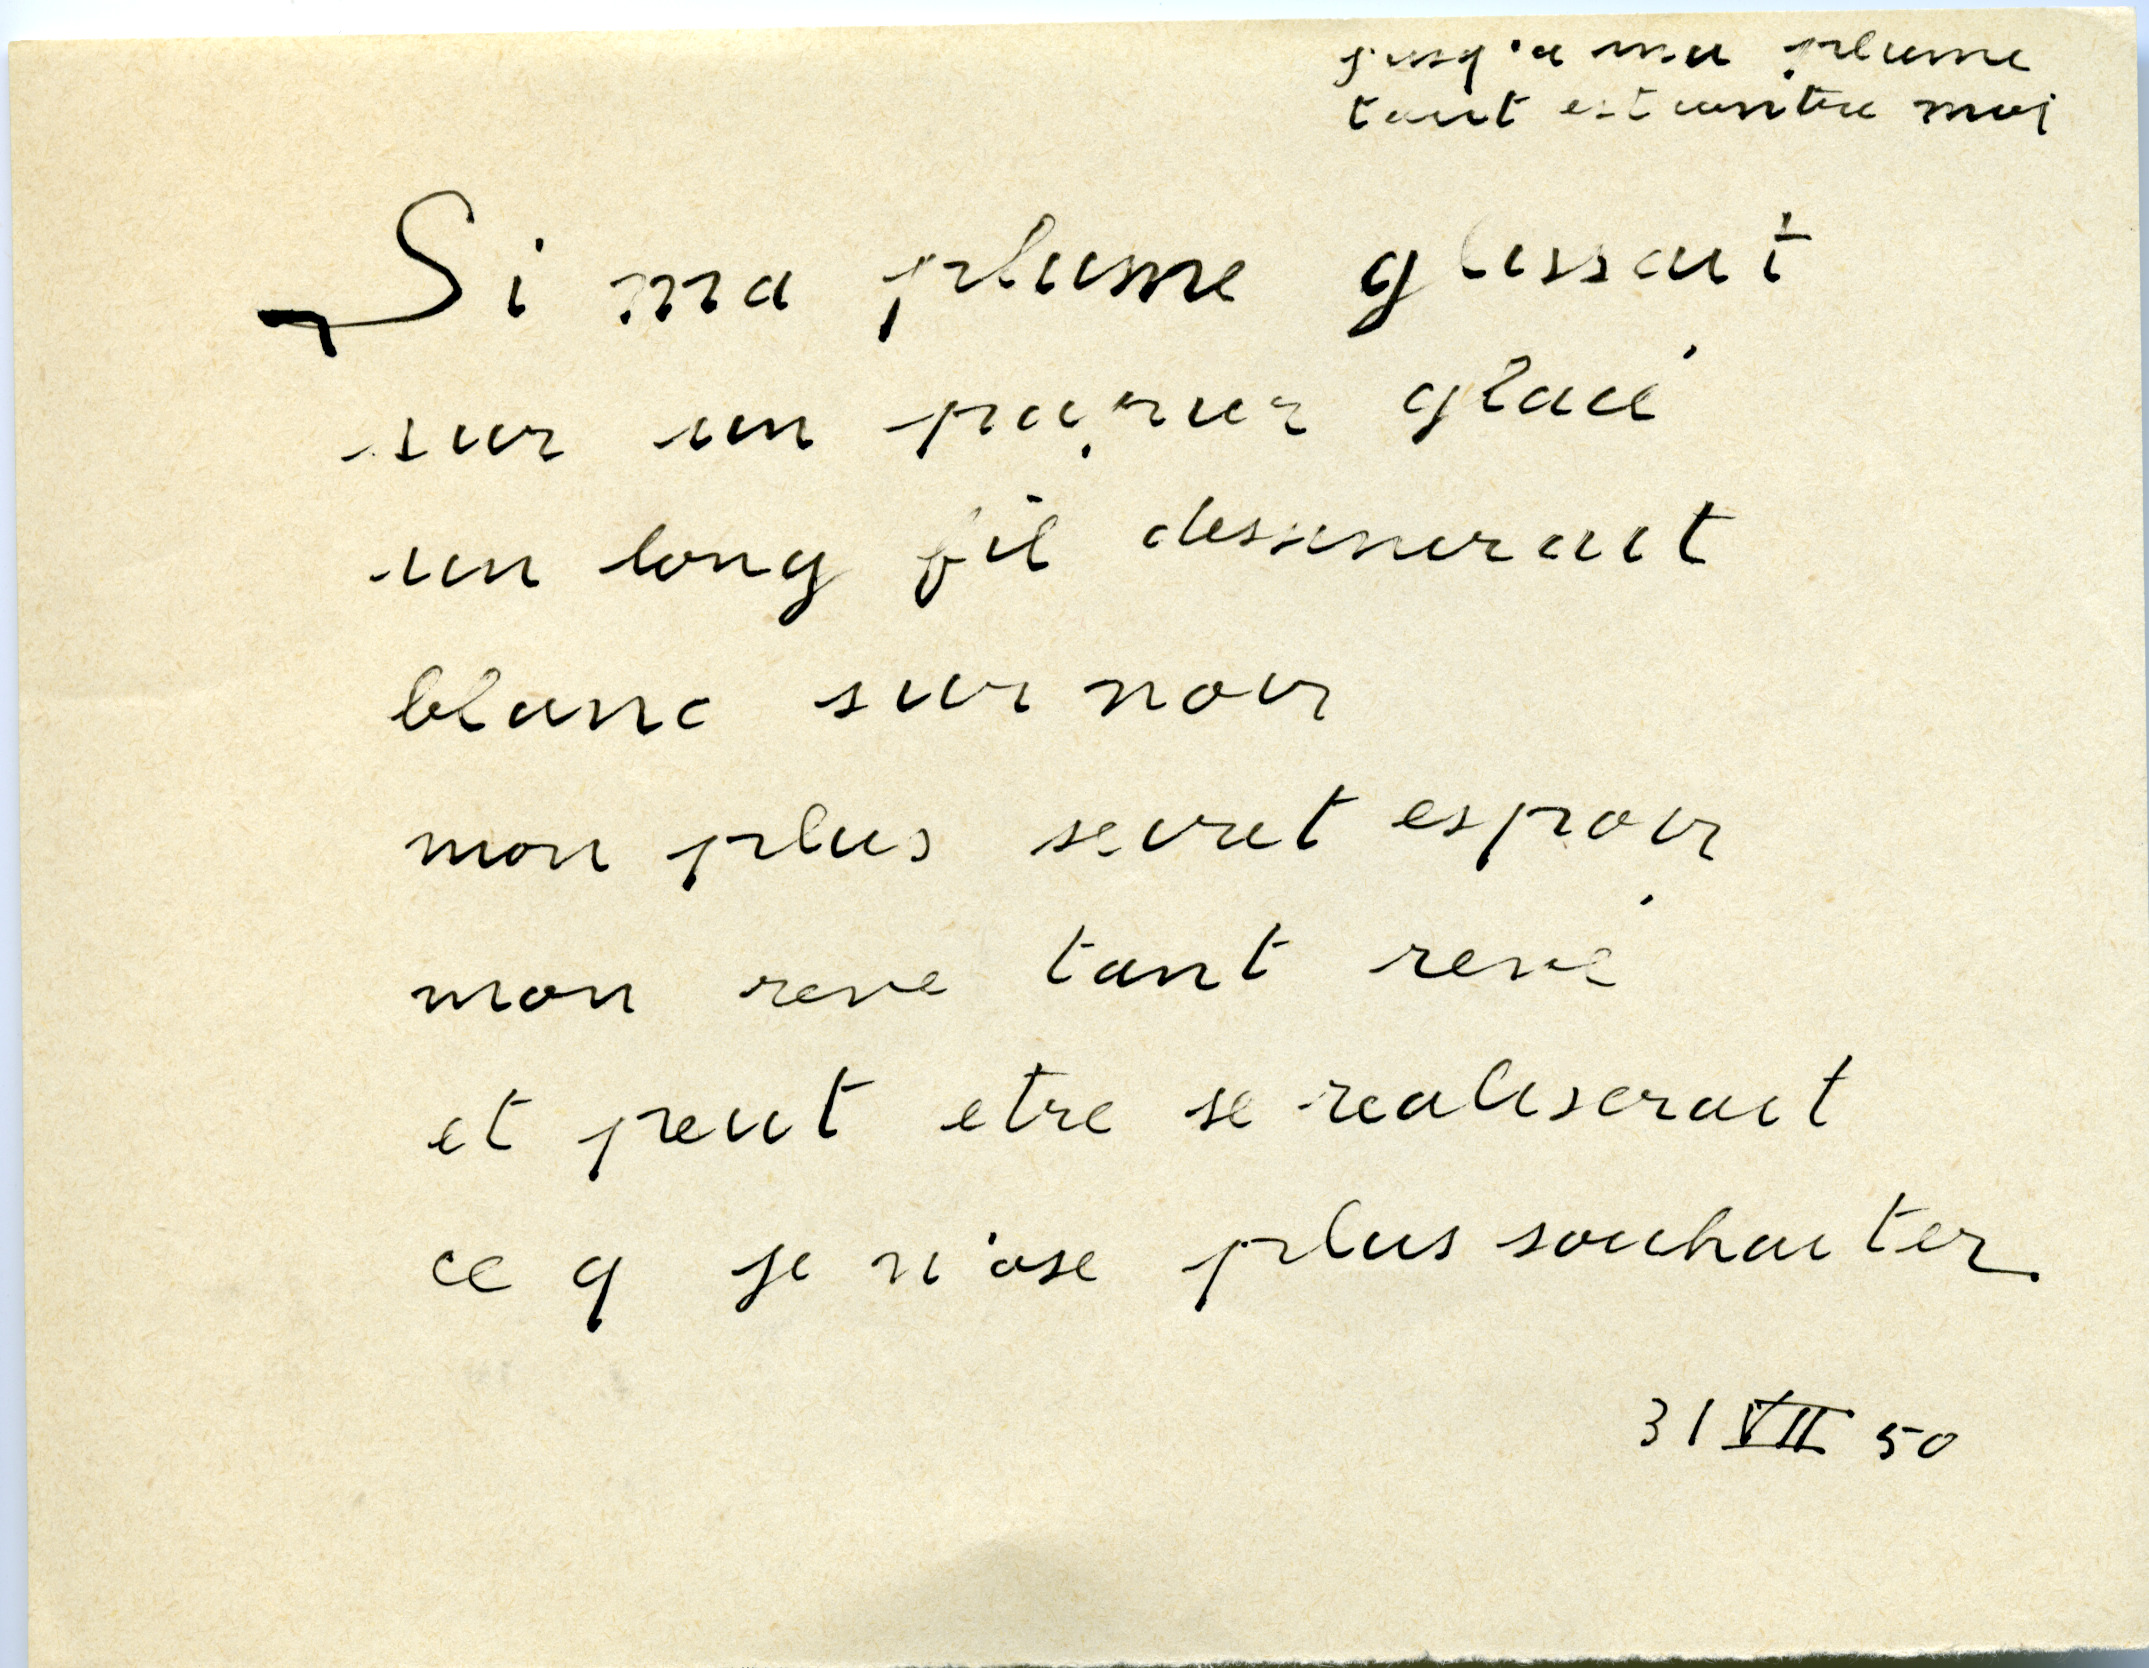 jusq'a ma plume
tout est contre moi
Si ma plume glissait
sur un papier glacé
un long fil dessinerait
blanc sur noir
mon plus secret espoir
mon reve tant revé
et peut etre se realiserait
ce q je n'ose plus souhaiter
31 VII 50